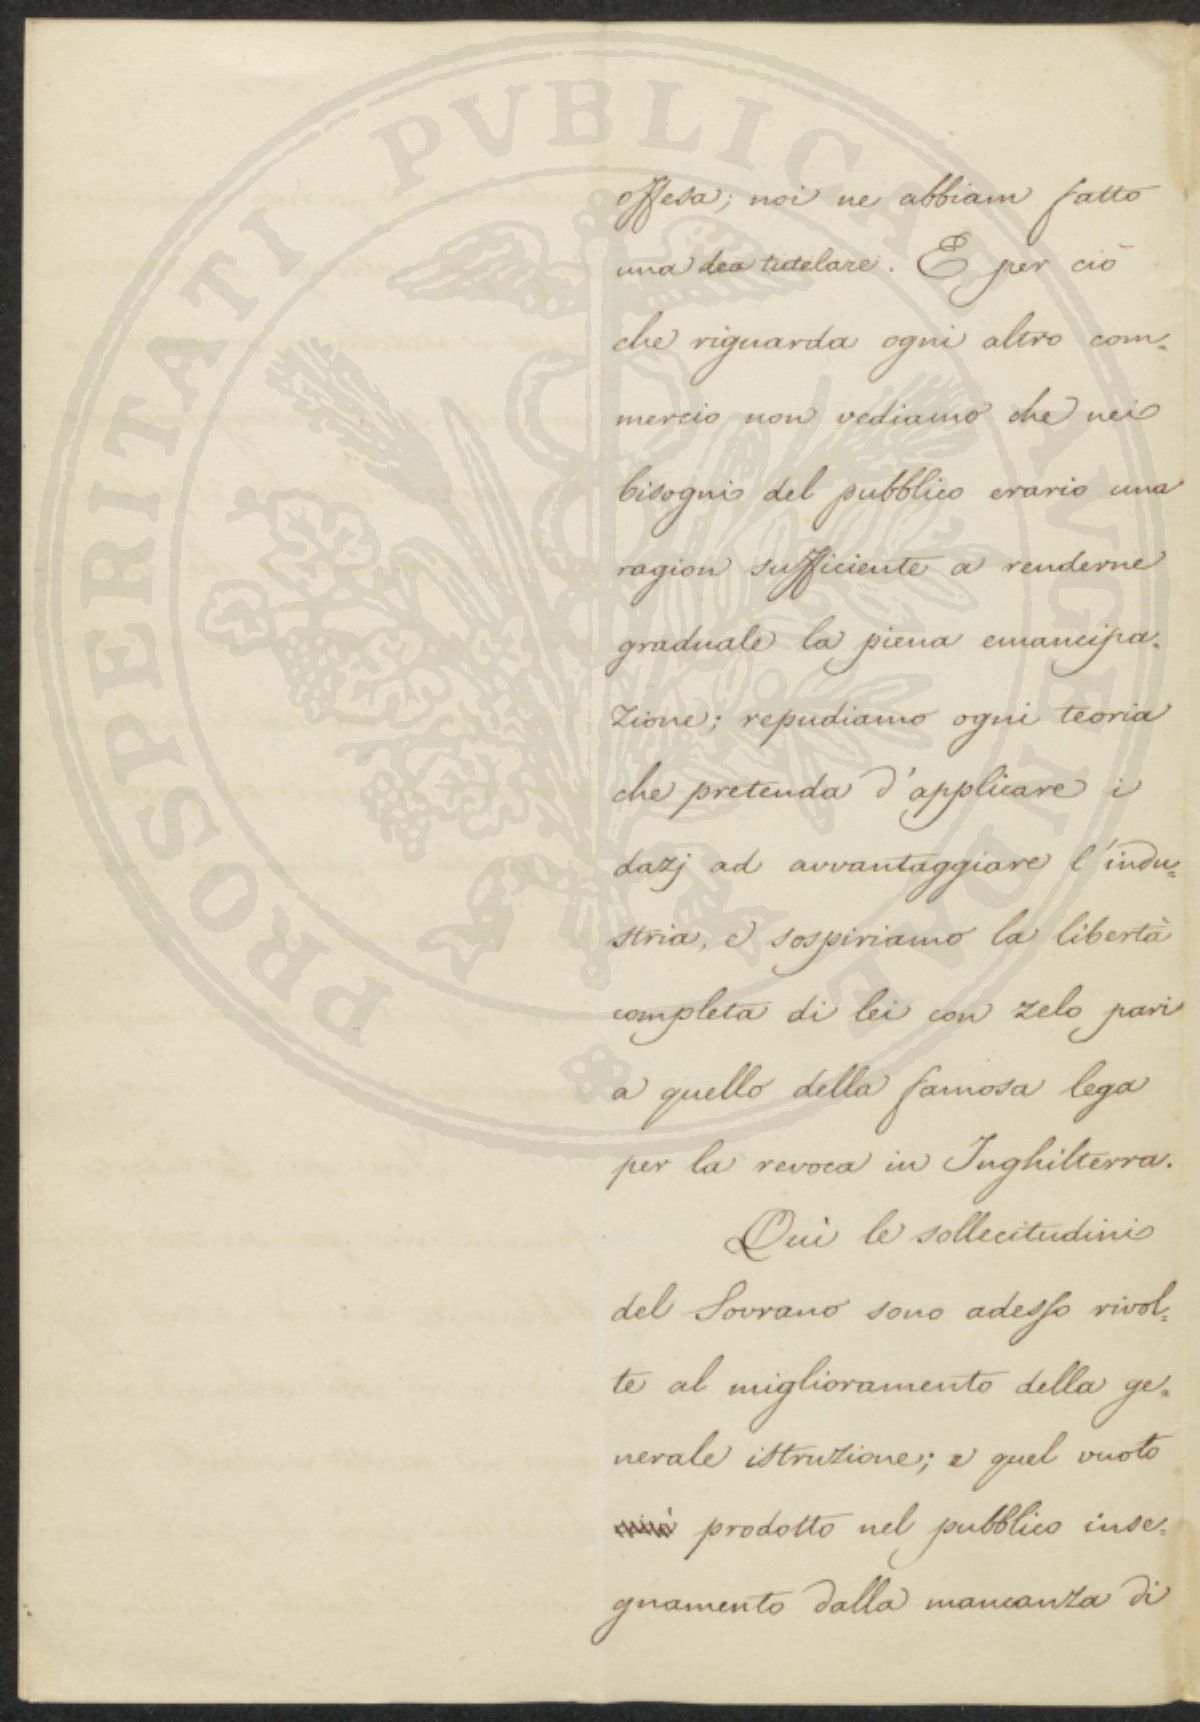 offesa; noi ne abbiam fatto
una dea tutelare. E per ciò
che riguarda ogni altro com=
mercio non vediamo che nei
bisogni del pubblico erario una
ragion sufficiente a renderne
graduale la piena emancipa=
zione; repudiamo ogni teoria
che pretenda d'applicare i
dazj ad avvantaggiare l'indu=
stria, e sospiriamo la libertà
completa di lei con zelo pari
a quello della famosa lega
per la revoca in Inghilterra.
Quì le sollecitudini
del Sovrano sono adesso rivol=
te al miglioramento della ge=
nerale istruzione; e quel vuoto
prodotto nel pubblico inse=
gnamento dalla mancanza di
PROSPERITATI PVBLICAE AVGENDAE